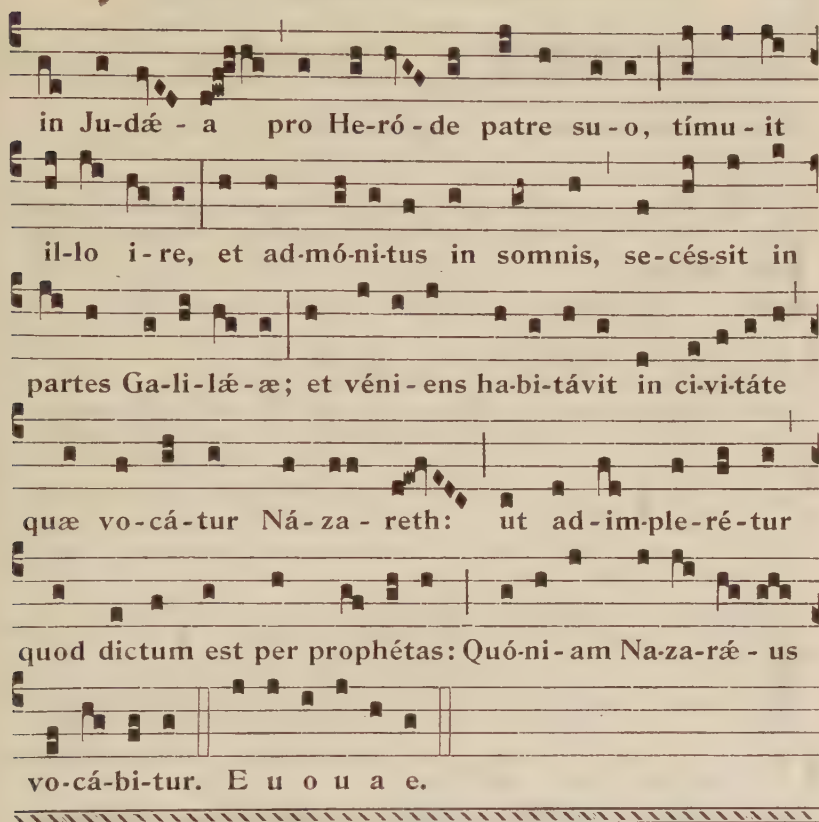 in Ju-dǽ - a pro He-ró-de patre su-o, tímu-it
il-lo i-re, et ad-mó-ni-tus in somnis, se-cés-sit in
partes Ga-li-lǽ-æ; et véni-ens ha-bi-távit in ci-vi-táte
quæ vo-cá-tur Ná-za-reth: ut ad-im-ple-ré-tur
quod dictum est per prophétas: Quó-ni-am Na-za-rǽ-us
vo-cá-bi-tur. E u o u a e.